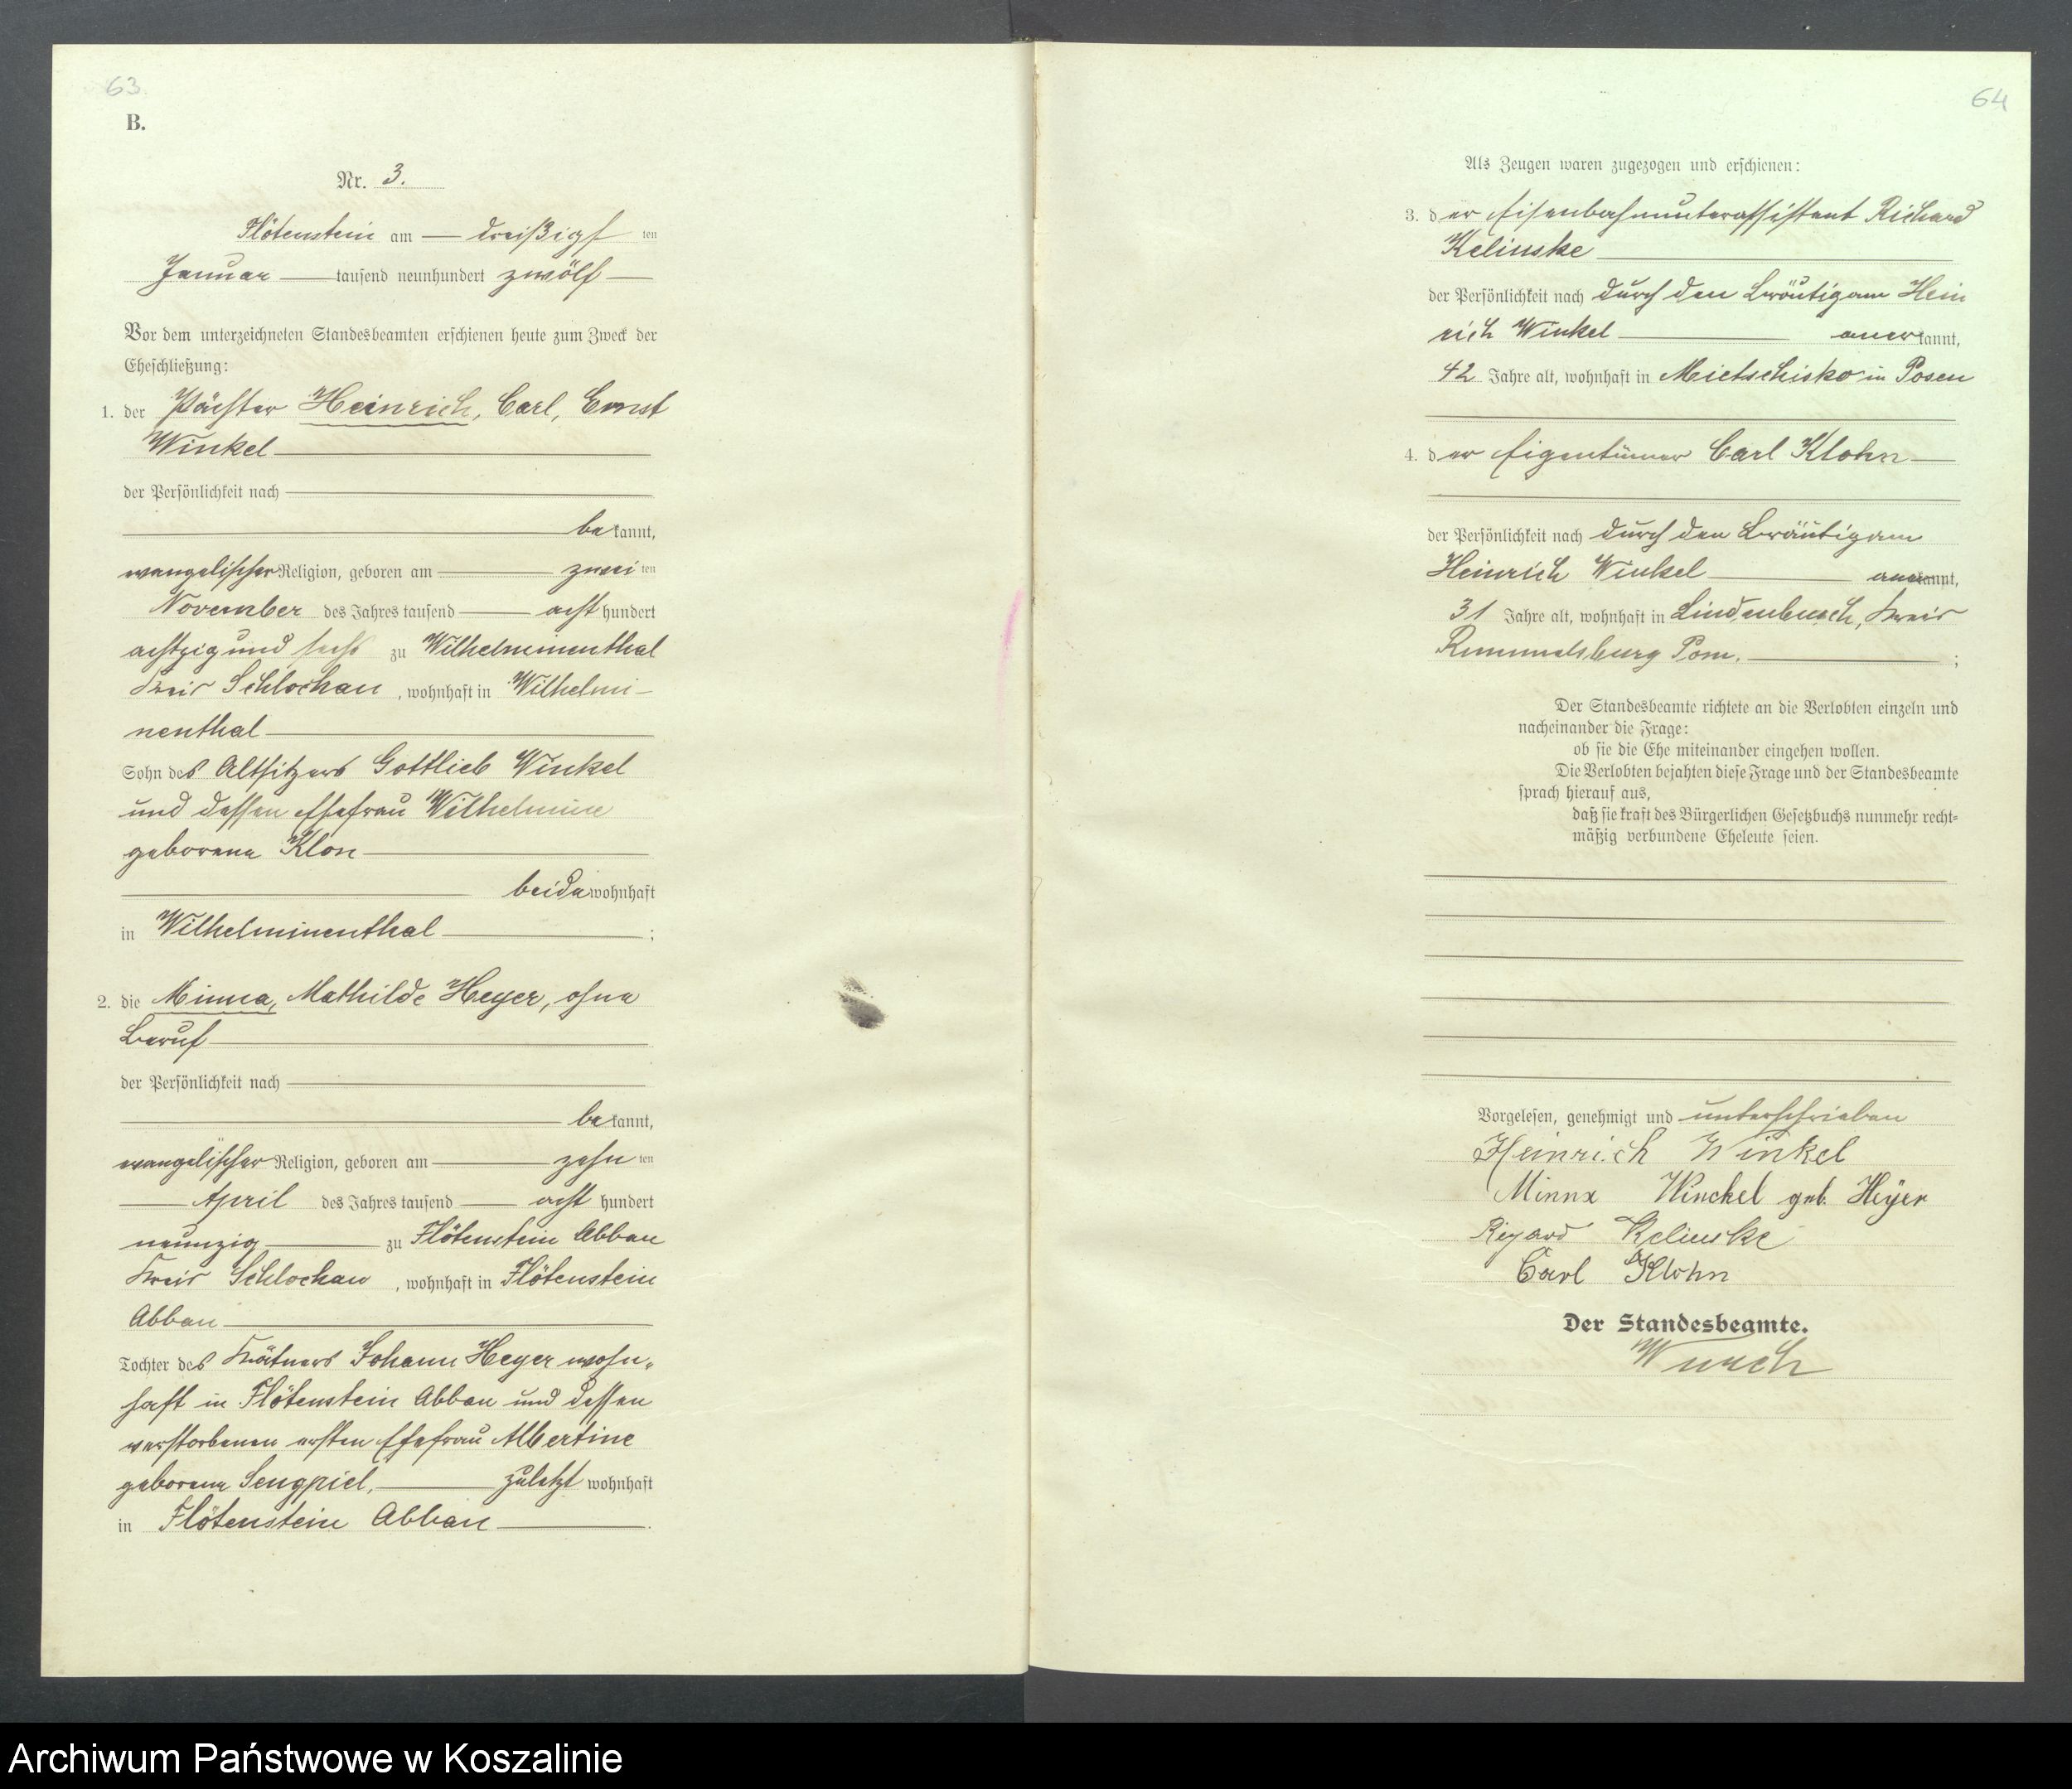 63.
B.
Nr. 3.
Flötenstein am dreißigs ten
Januar tausend neunhundert zwölf
Vor dem unterzeichneten Standesbeamten erschienen heute zum Zweck der
Eheschließung:
1. der Pächter Heinrich, Carl, Ernst
Winkel
der Persönlichkeit nach
be kannt,
evangelischer Religion, geboren am zwei ten
November des Jahres tausend acht hundert
achtzig und sechs zu Wilhelminenthal
Kreis Schlochau, wohnhaft in Wilhelmi-
nenthal
Sohn des Altsitzers Gottlieb Winkel
und dessen Ehefrau Wilhelmine
geborene Klon
beide wohnhaft
in Wilhelminenthal ;
2. die Minna, Mathilde Heyer, ohne
Beruf
der Persönlichkeit nach
be kannt,
evangelischer Religion, geboren am zehn ten
April des Jahres tausend acht hundert
neunzig zu Flötenstein Abbau
Kreis Schlochau, wohnhaft in Flötenstein
Abbau
Tochter des Kätners Johann Heyer wohn-
haft in Flötenstein Abbau und dessen
verstorbenen ersten Ehefrau Albertine
geborene Sengpiel, zuletzt wohnhaft
in Flötenstein Abbau .
64
Als Zeugen waren zugezogen und erschienen:
3. der Eisenbahnunterassistent Richard
Kelinske
der Persönlichkeit nach durch den Bräutigam Hein
rich Winkel anerkannt,
42 Jahre alt, wohnhaft in Mietschisko in Posen
4. der Eigentümer Carl Klohn
der Persönlichkeit nach durch den Bräutigam
Heinrich Winkel anerkannt,
31 Jahre alt, wohnhaft in Lindenbusch, Kreis
Rummelsburg Pom. ;
Der Standesbeamte richtete an die Verlobten einzeln und
nacheinander die Frage:
ob sie die Ehe miteinander eingehen wollen.
Die Verlobten bejahten diese Frage und der Standesbeamte
sprach hierauf aus,
daß sie kraft des Bürgerlichen Gesetzbuchs nunmehr recht-
mäßig verbundene Eheleute seien.
Vorgelesen, genehmigt und unterschrieben
Heinrich Winkel
Minna Winckel geb. Heÿer
Richard Kelinske
Carl Klohn
Der Standesbeamte.
Wurch
Archiwum Państwowe w Koszalinie